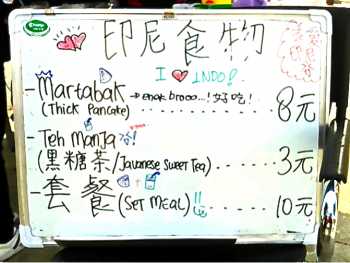 印尼食物
I ❤ INDO!
- Martabak → enak brooo...! 好吃! ...... 8元
(Thick Pancake)
- Teh ManJa 冷!
(黑糖茶/Javanese Sweet Tea) ...... 3元
- 套餐 (SET MEAL) ...... 10元